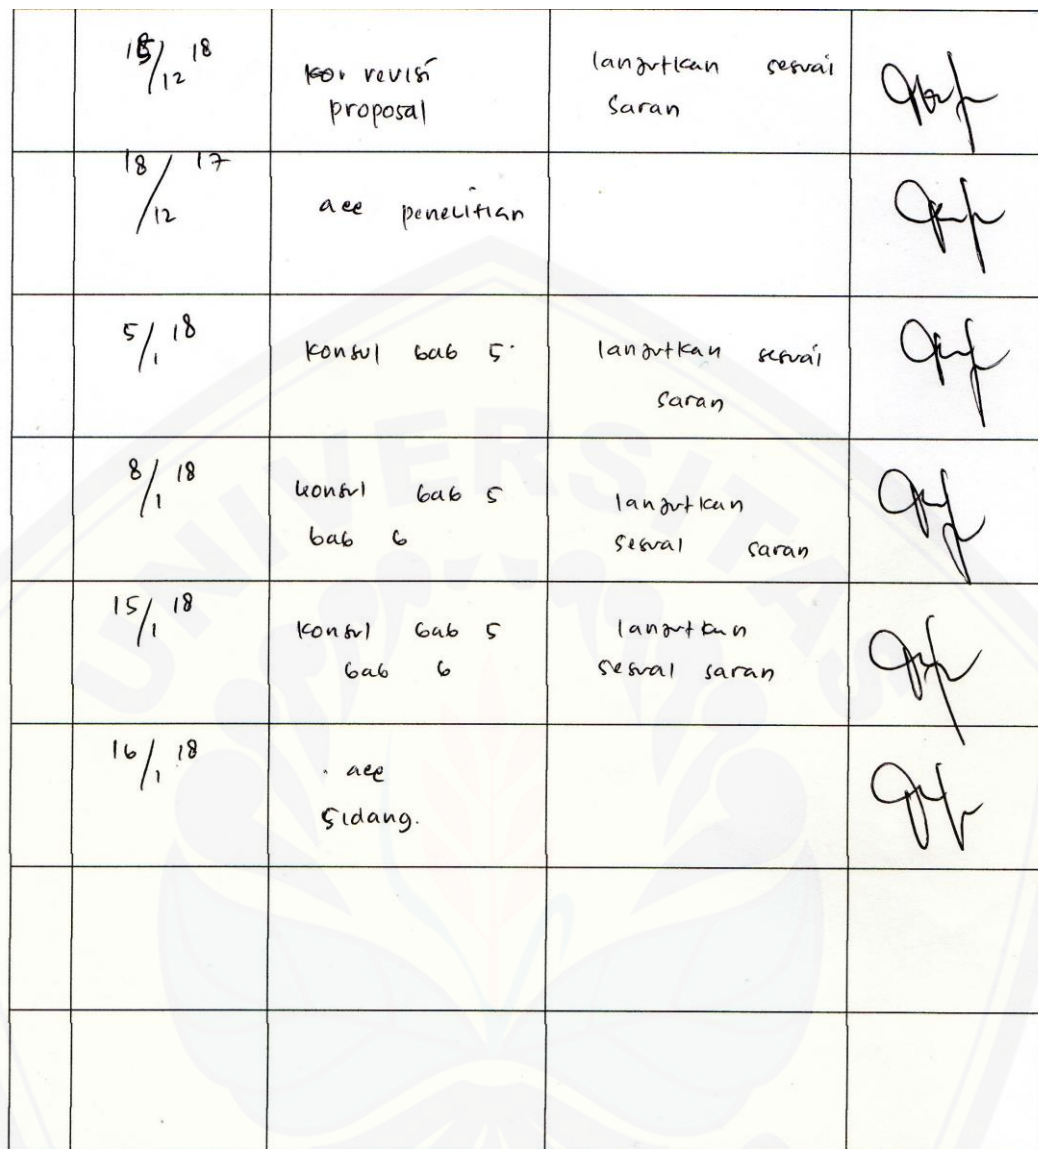 15/12 18
revisi
proposal
lanjutkan sesuai
saran
18/12 17
acc penelitian
5/1 18
konsul bab 5
lanjutkan sesuai
saran
8/1 18
konsul bab 5
bab 6
lanjutkan
sesuai saran
15/1 18
konsul bab 5
bab 6
lanjutkan
sesuai saran
16/1 18
acc
sidang.
UNIVERSITAS